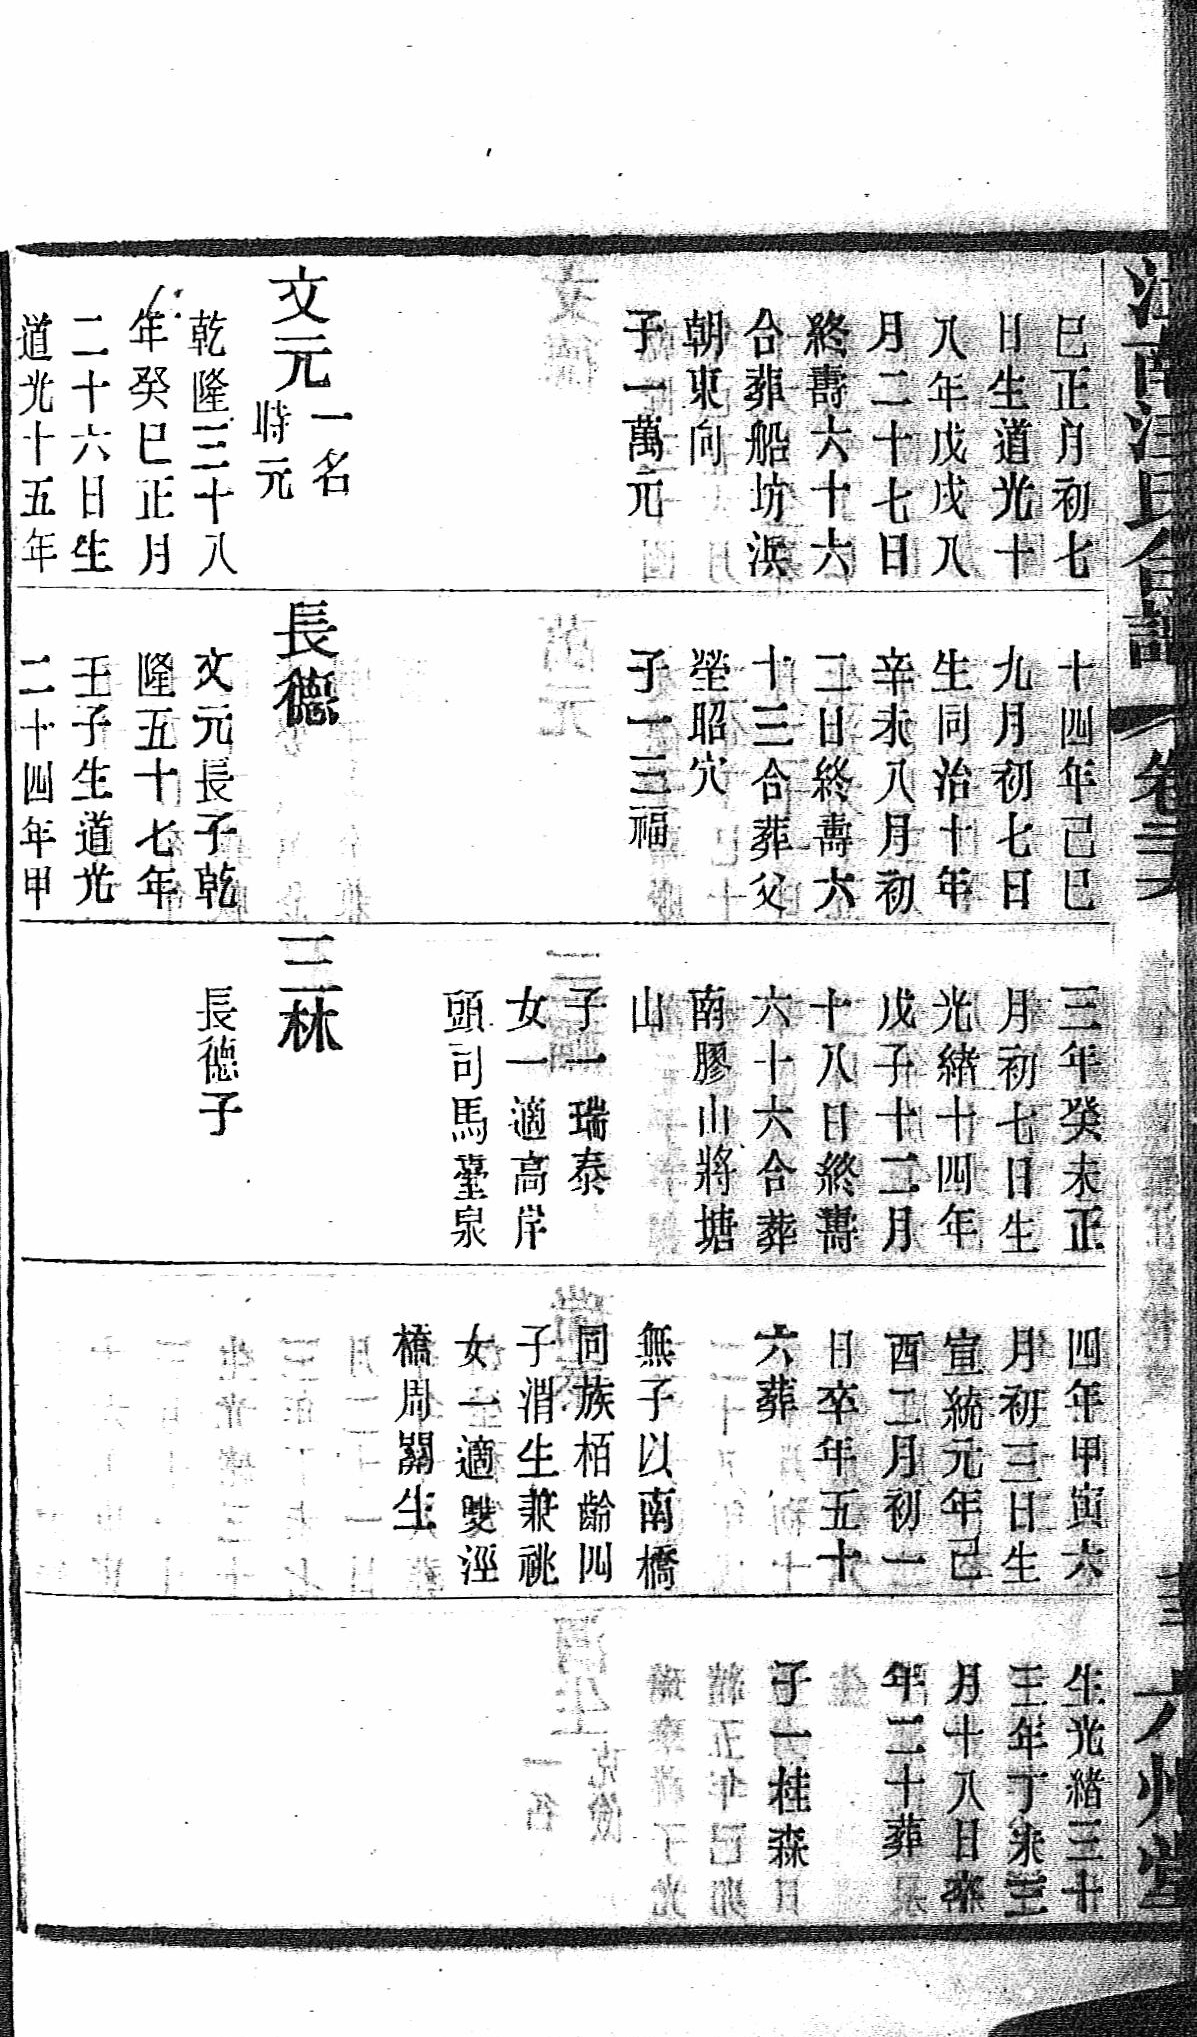 巳正月初七
日生道光十
八年戊戌八
月二十七日
終壽六十六
合葬船坊浜
朝東向
子一萬元
文元
一名
時元
乾隆三十八
年癸巳正月
二十六日生
道光十五年
十四年己巳
九月初七日
生同治十年
辛未八月初
二日終壽六
十三合葬父
塋昭穴
子一三福
長德
文元長子乾
隆五十七年
壬子生道光
二十四年甲
三年癸未正
月初七日生
光緒十四年
戊子十二月
十八日終壽
六十六合葬
南膠山將塘
山
子一瑞泰
女一適高岸
頭司馬鑾泉
三林
長德子
四年甲寅六
月初三日生
宣統元年己
酉二月初一
日卒年五十
六葬
無子以南橋
同族栢齡四
子渭生兼祧
女一適雙涇
橋周關生
生光緒三十
三年丁未三
月十八日卒
年二十葬
子一桂森